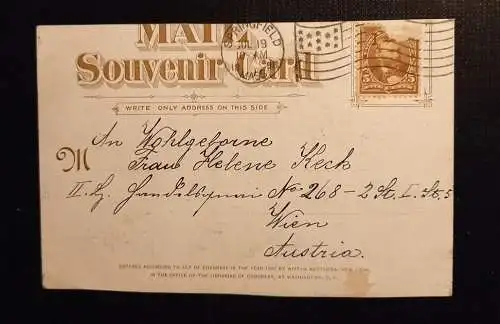 MAIL
Souvenir Card
SPRINGFIELD
JUL 19
MASS
WRITE ONLY ADDRESS ON THIS SIDE
M An Wohlgeborne
Frau Helene Keck
II. Bz. Handelsquai No 268 - 2 St. I. St. 5
Wien
Austria.
ENTERED ACCORDING TO ACT OF CONGRESS IN THE YEAR
IN THE OFFICE OF THE LIBRARIAN OF CONGRESS, AT WASHINGTON, D.C.